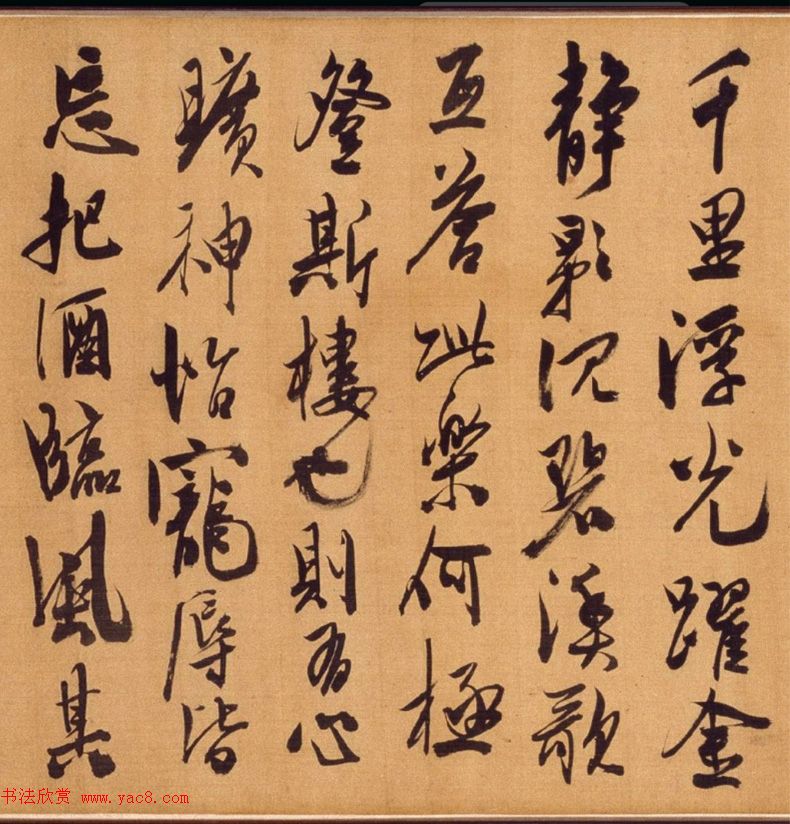 千里浮光躍金
静影沉碧溪歌
互荅此樂何極
登斯樓也則有心
曠神怡寵辱皆
忘把酒臨風其
书法欣赏 www.yac8.com